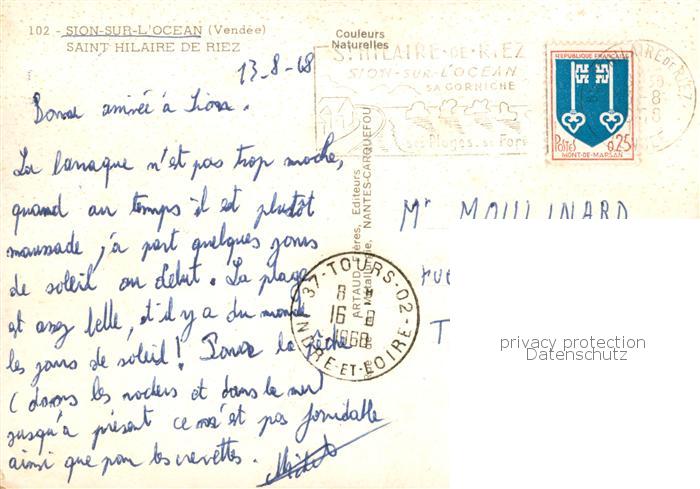 102 - SION-SUR-L'OCEAN (Vendée)
SAINT HILAIRE DE RIEZ
Couleurs
Naturelles
13-8-68
Bonne arrivée à Sion.
La baraque n'est pas trop moche,
quand au temps il est plutôt
maussade, à part quelques jours
de soleil au début. La plage
est assez belle, et il y a du monde
les jours de soleil! Pour la pêche
(dans les rochers et dans la mer)
jusqu'à présent ce n'est pas formidable
ainsi que pour les crevettes.
Sᵗ HILAIRE-DE-RIEZ
SION-SUR-L'OCEAN
SA CORNICHE
ses Plages, sa Forêt
REPUBLIQUE FRANÇAISE
POSTES 0,25
MONT-DE-MARSAN
ARTAUD Frères, Editeurs
NANTES-CARQUEFOU
37-TOURS-02
8 H
16 - 8
1968
INDRE-ET-LOIRE
Mʳ MOULINARD
rue
T
privacy protection
Datenschutz